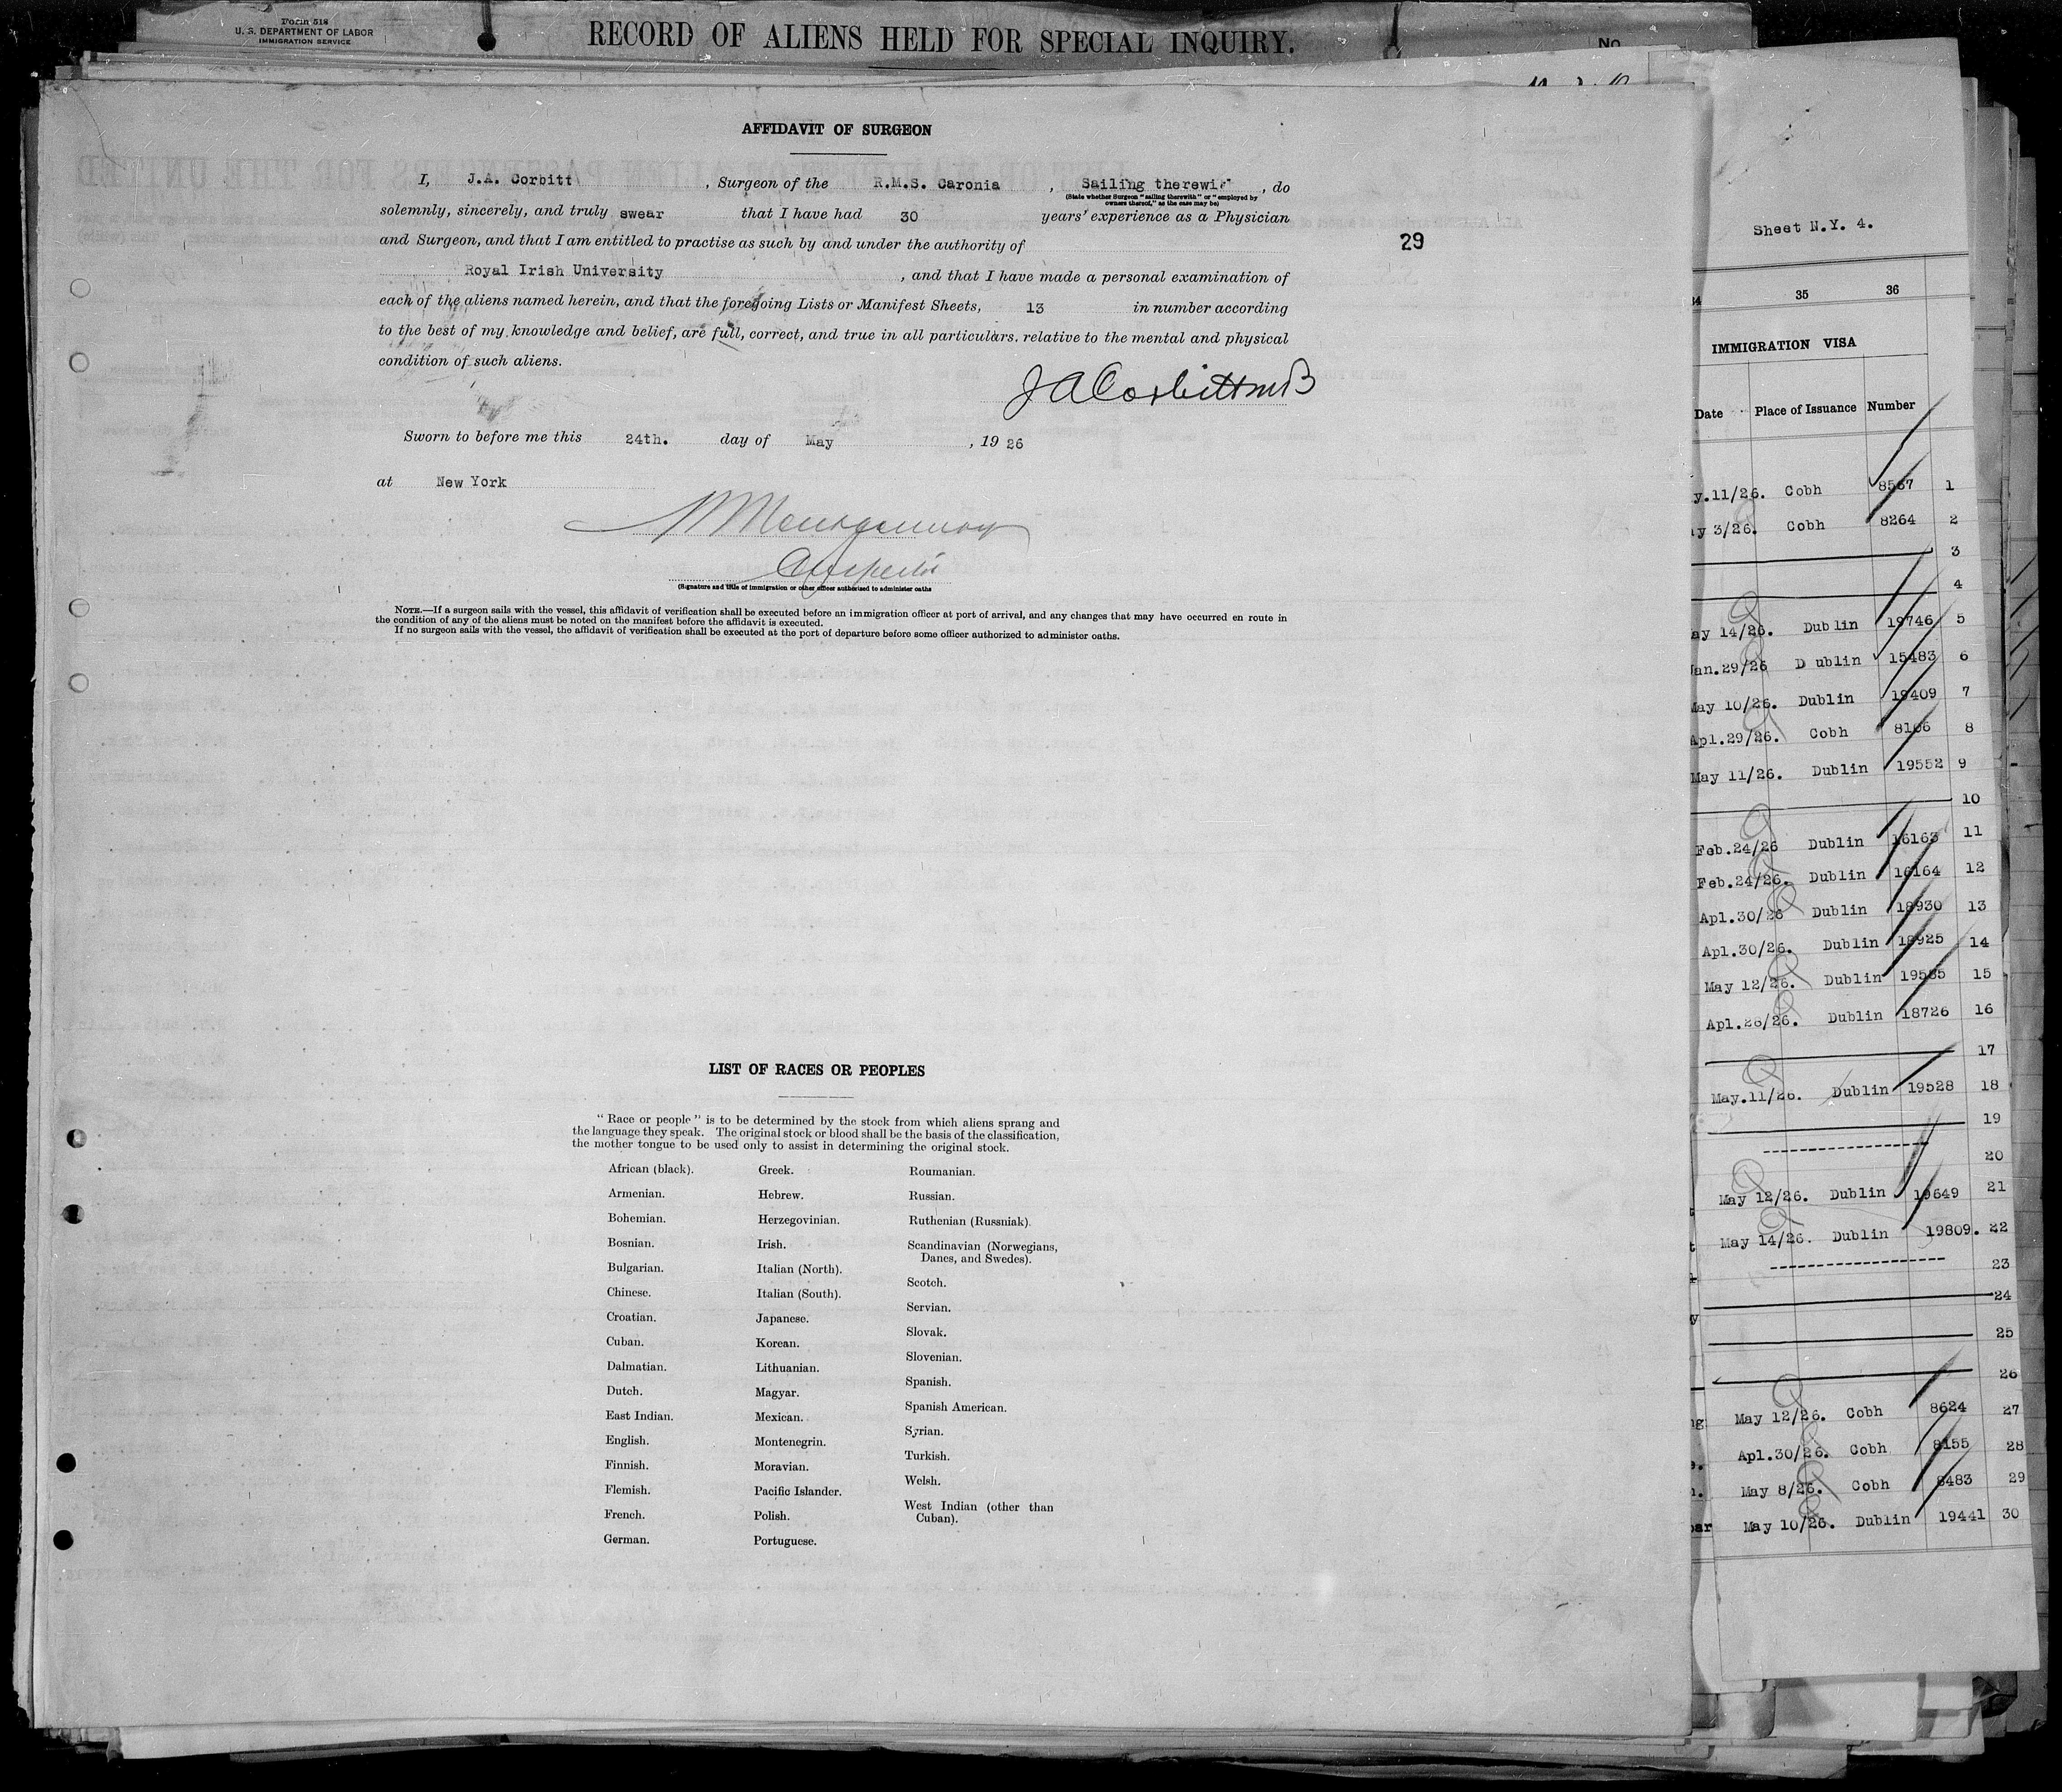 Form 518
U. S. DEPARTMENT OF LABOR
IMMIGRATION SERVICE
RECORD OF ALIENS HELD FOR SPECIAL INQUIRY.
No.
AFFIDAVIT OF SURGEON
I, J.A. Corbitt , Surgeon of the R.M.S. Caronia , Sailing therewi , do
(State whether Surgeon "sailing therewith" or "employed by
owners thereof," as the case may be)
solemnly, sincerely, and truly swear that I have had 30 years' experience as a Physician
and Surgeon, and that I am entitled to practise as such by and under the authority of
29
Royal Irish University , and that I have made a personal examination of
each of the aliens named herein, and that the foregoing Lists or Manifest Sheets, 13 in number according
to the best of my knowledge and belief, are full, correct, and true in all particulars, relative to the mental and physical
condition of such aliens.
J A Corbitt MB
Sworn to before me this 24th. day of May , 19 26
at New York
Montgomery
Inspector
(Signature and title of immigration or other officer authorised to administer oaths
NOTE.—If a surgeon sails with the vessel, this affidavit of verification shall be executed before an immigration officer at port of arrival, and any changes that may have occurred en route in
the condition of any of the aliens must be noted on the manifest before the affidavit is executed.
If no surgeon sails with the vessel, the affidavit of verification shall be executed at the port of departure before some officer authorized to administer oaths.
LIST OF RACES OR PEOPLES
"Race or people" is to be determined by the stock from which aliens sprang and
the language they speak. The original stock or blood shall be the basis of the classification,
the mother tongue to be used only to assist in determining the original stock.
African (black).
Armenian.
Bohemian.
Bosnian.
Bulgarian.
Chinese.
Croatian.
Cuban.
Dalmatian.
Dutch.
East Indian.
English.
Finnish.
Flemish.
French.
German.
Greek.
Hebrew.
Herzegovinian.
Irish.
Italian (North).
Italian (South).
Japanese.
Korean.
Lithuanian.
Magyar.
Mexican.
Montenegrin.
Moravian.
Pacific Islander.
Polish.
Portuguese.
Roumanian.
Russian.
Ruthenian (Russniak).
Scandinavian (Norwegians,
Danes, and Swedes).
Scotch.
Servian.
Slovak.
Slovenian.
Spanish.
Spanish American.
Syrian.
Turkish.
Welsh.
West Indian (other than
Cuban).
Sheet N.Y. 4.
34 35 36
IMMIGRATION VISA
Date Place of Issuance Number
y.11/26. Cobh 8567 1
ay 3/26. Cobh 8264 2
3
4
ay 14/26. Dublin 19746 5
Jan.29/26 D ublin 15483 6
May 10/26. Dublin 19409 7
Apl.29/26. Cobh 8106 8
May 11/26. Dublin 19552 9
10
Feb.24/26 Dublin 16163 11
Feb.24/26. Dublin 16164 12
Apl.30/26 Dublin 18930 13
Apl.30/26. Dublin 18925 14
May 12/26. Dublin 19585 15
Apl.28/26. Dublin 18726 16
17
May.11/26. Dublin 19528 18
19
20
May 12/26. Dublin 19649 21
May 14/26. Dublin 19809. 22
23
24
25
26
May 12/26. Cobh 8624 27
Apl.30/26. Cobh 8155 28
May 8/26. Cobh 8483 29
May 10/26. Dublin 19441 30